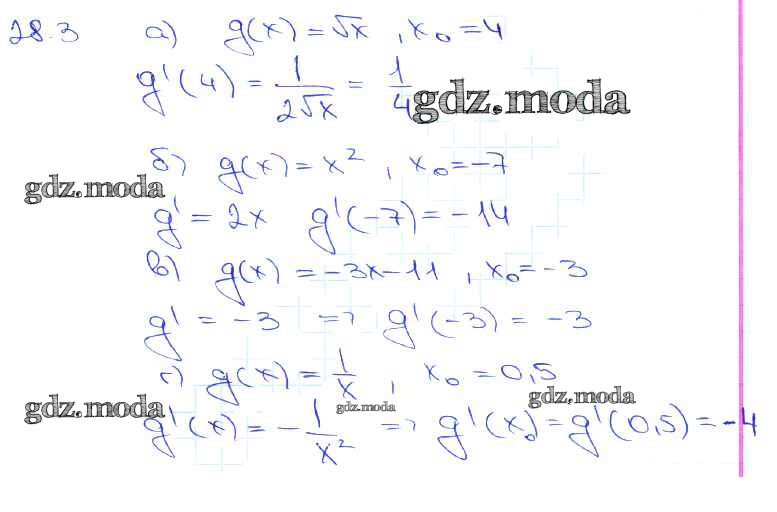 28.3 а) g(x) = √x , x₀ = 4
g'(4) = 1/(2√x) = 1/4
gdz.moda
б) g(x) = x² , x₀ = -7
gdz.moda
g' = 2x g'(-7) = -14
в) g(x) = -3x-11 , x₀ = -3
g' = -3 => g'(-3) = -3
г) g(x) = 1/x , x₀ = 0,5
gdz.moda
gdz.moda
gdz.moda
g'(x) = -1/x² => g'(x₀) = g'(0,5) = -4